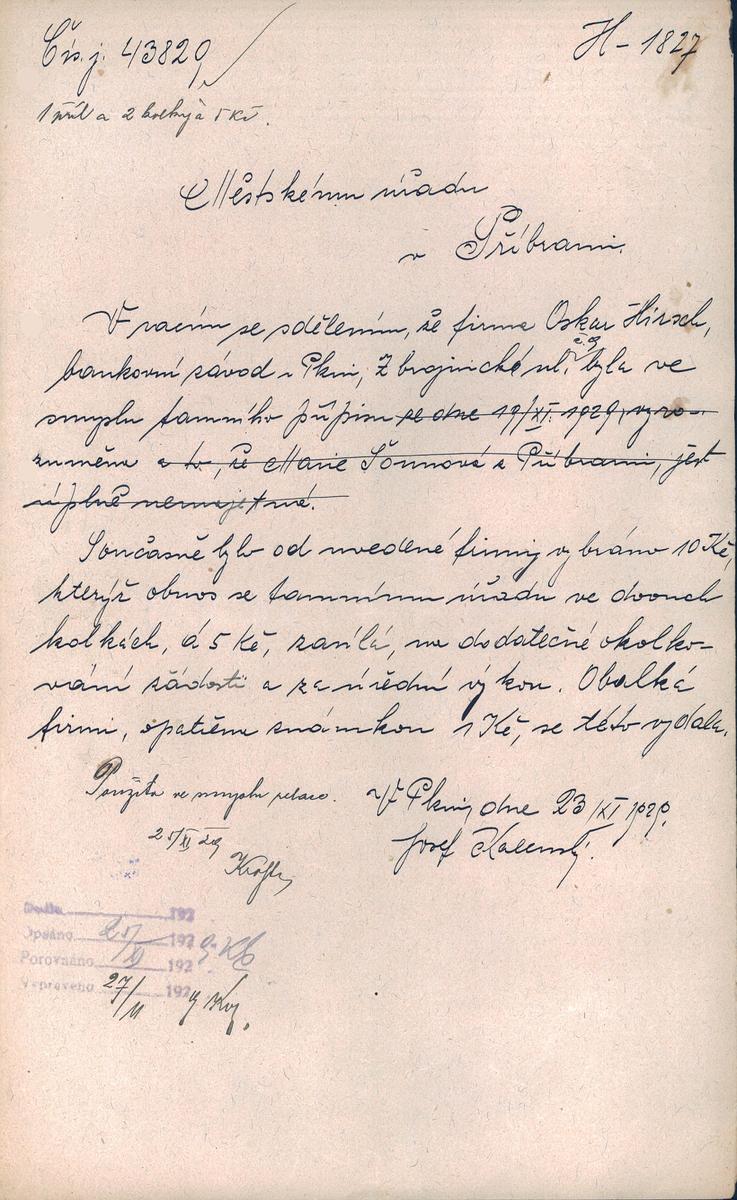 Čís. j. 43829
H - 1827
1 příl a 2 kolky à 5 Kč.
Městskému úřadu
v Příbrami.
Vracím se sdělením, že firma Oskar Hirsch,
bankovní závod v Plzni, Zbrojnické ul. byla ve
smyslu tamního přípisu ze dne 19/XI. 1929, vyro-
zuměna a to, že Marie Šönnová z Příbrami, jest
úplně nemajetná.
Současně bylo od uvedené firmy vybráno 10 Kč,
kterýž obnos se tamnímu úřadu ve dvouch
kolkách, á 5 Kč, zasílá, na dodatečné okolko-
vání žádosti a za úřední výkon. Obálka
firmi, opatřena známkou 1 Kč, se této vydala.
Použito ve smyslu relace.
V Plzni, dne 23/XI 1929.
25/XI 29
Josef Kalenský.
Došlo 192
Opsáno 25/XI 192 9
Porovnáno 192
Vypraveno 27/11 192 9